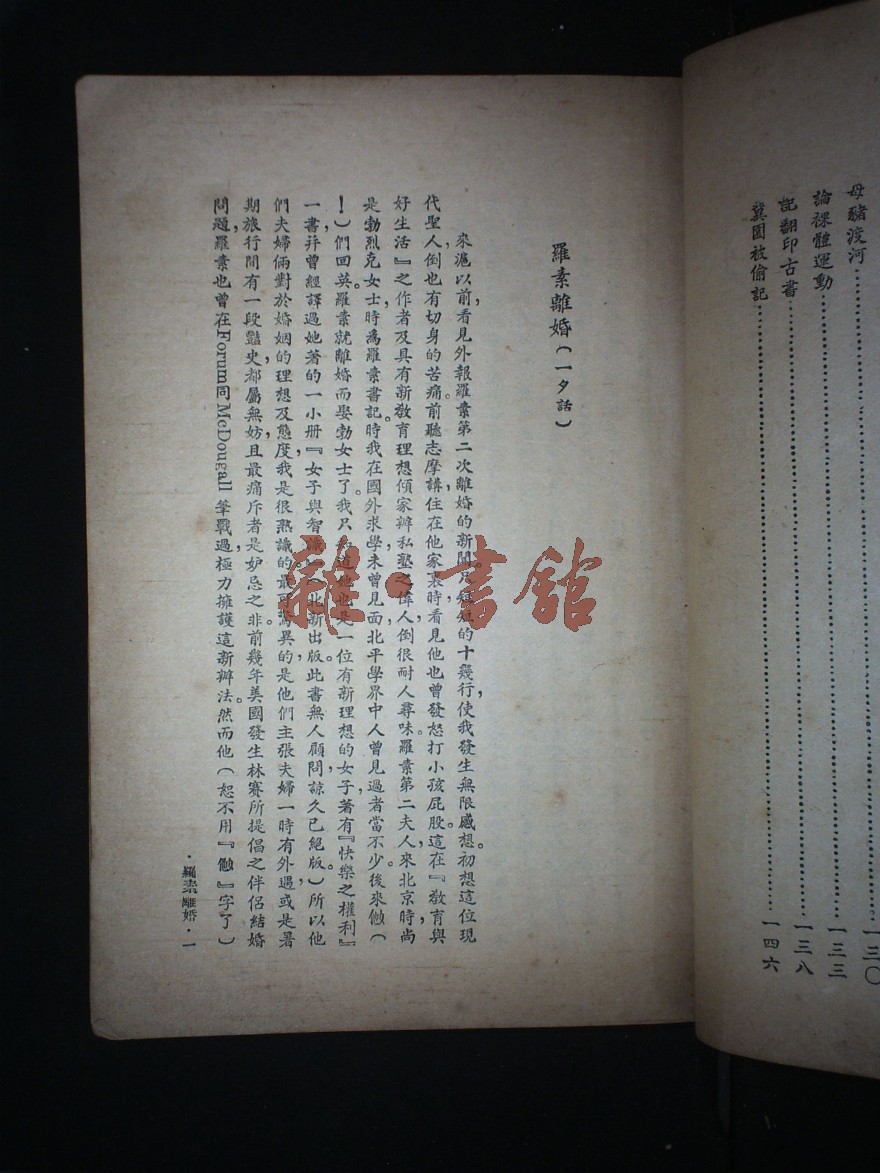 母豬渡河……一三〇
論裸體運動……一三三
記翻印古書……一三八
冀園被偷記……一四六
羅素離婚(一夕話)
來滬以前,看見外報羅素第二次離婚的新聞,短短的十幾行,使我發生無限感想。初想這位現
代聖人倒也有切身的苦痛。前聽志摩講,住在他家裏時,看見他也曾發怒打小孩屁股。這在『教育與
好生活』之作者及具有新教育理想傾家辦私塾之偉人,倒很耐人尋味。羅素第二夫人來北京時,尚
是勃烈克女士,時爲羅素書記。時我在國外求學,未曾見面,北平學界中人曾見過者當不少。後來㑚(
!)們回英,羅素就離婚而娶勃女士了。我只知道她也是一位有新理想的女子,著有『快樂之權利』
一書,并曾經譯過她著的一小冊『女子與智識』(北新出版,此書無人顧問,諒久已絕版。)所以他
們夫婦倆對於婚姻的理想及態度,我是很熟識的。最可驚異的是他們主張夫婦一時有外遇或是暑
期旅行間有一段豔史,都屬無妨,且最痛斥者是妒忌之非。前幾年美國發生林賽所提倡之伴侶結婚
問題,羅素也曾在Forum同McDougall筆戰過,極力擁護這新辦法。然而他(恕不用『㑚』字了)
·羅素離婚·一
雜·書館